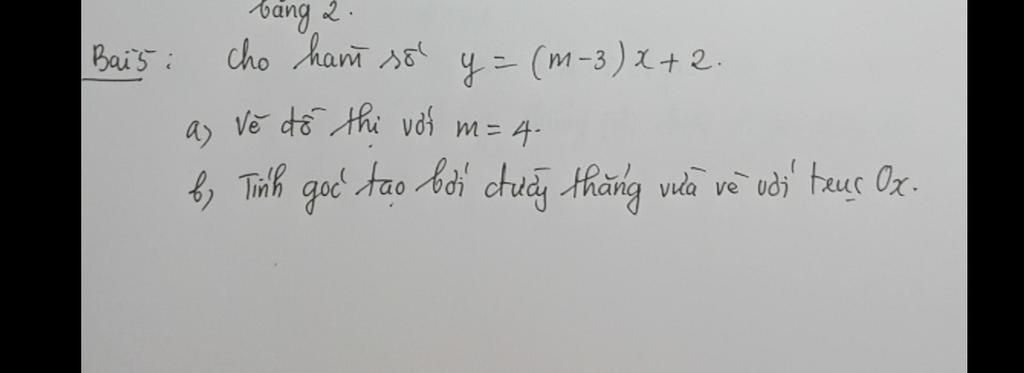 bằng 2.
Bài 5: Cho hàm số y = (m-3)x + 2.
a, Vẽ đồ thị với m = 4.
b, Tính góc tạo bởi đường thẳng vừa vẽ với trục Ox.